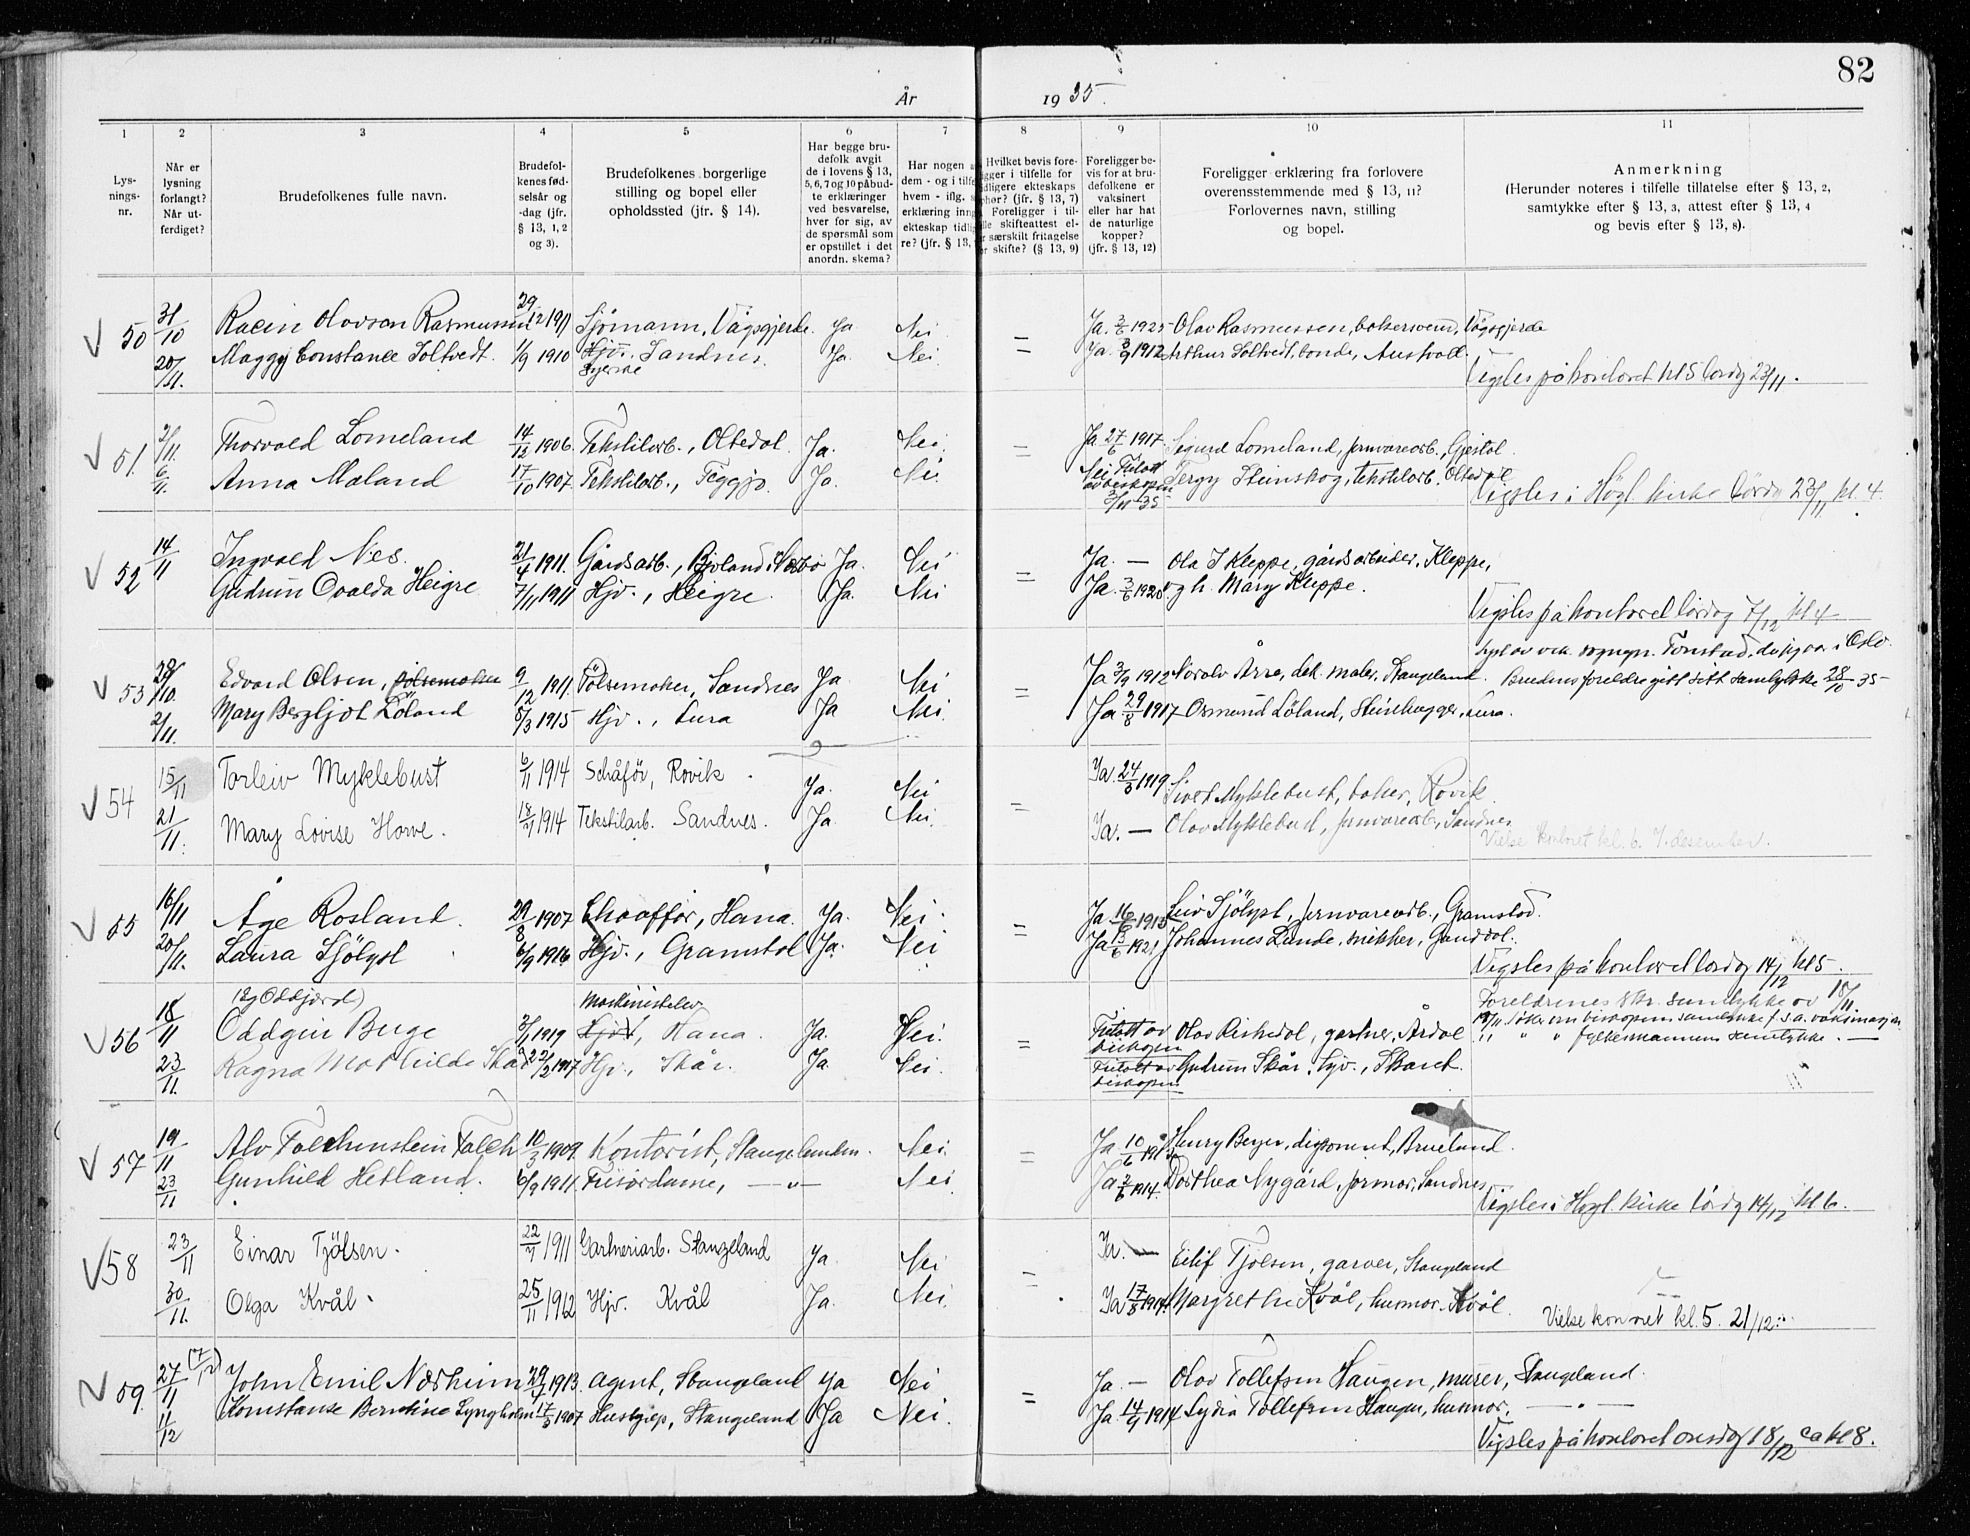 82
År 1935.
1 2 3 4 5 6 7 8 9 10 11
Lysningsnr.
Når er lysning forlangt? Når utferdiget?
Brudefolkenes fulle navn.
Brudefolkenes fødselsår og -dag (jfr. § 13, 1, 2 og 3).
Brudefolkenes borgerlige stilling og bopel eller opholdssted (jfr. § 14).
Har begge brudefolk avgit de i lovens § 13, 5, 6, 7 og 10 påbudte erklæringer ved besvarelse, hver for sig, av de spørsmål som er opstillet i det anordn. skema?
Har nogen a
dem - og i tilfe
hvem - iflg. s
erklæring inng
ekteskap tidlig
re? (jfr. § 13,
Hvilket bevis fore-
igger i tilfelle for
idligere ekteskaps
phør? (jfr. § 13, 7)
Foreligger i til-
lle skifteattest el-
r særskilt fritagelse
or skifte? (§ 13, 9)
Foreligger bevis for at brudefolkene er vaksinert eller har hat de naturlige kopper? (jfr. § 13, 12)
Foreligger erklæring fra forlovere overensstemmende med § 13, 11? Forlovernes navn, stilling og bopel.
Anmerkning (Herunder noteres i tilfelle tillatelse efter § 13, 2, samtykke efter § 13, 3, attest efter § 13, 4 og bevis efter § 13, 8).
V 50 31/10 29/12 1911 Sjömann, Vågsgjerde. Ja Nei Ja. 1925 Olav Rasmussen, bakersvend, Vågsgjerde
20/11. Maggy Constance Soltvedt. 1/9 1910 Hjv. Sandnes. Ja. Nei. = Ja. 3/9 1912 Arthur Soltvedt, bonde, Austvoll.
Vigsles på kontoret kl 5 lördag 23/11.
V 51. 2/11. Thorvald Lomeland 14/12 1906. Tekstilarb., Oltedal. Ja. Nei. = Ja 27/6 1917. Sigurd Lomeland, jernvarearb., Gjestal.
6/11. Anna Maland 17/10 1907. Tekstilarb., Figgjo. Ja. Nei. Nei Fritatt av biskopen 35 Tergy Steinskog, tekstilarb. Oltedal
Vigsles i Högl. kirke lördag 23/11 kl. 4.
V 52 14/11 Ingvald Nes. 21/4 1911. Gårdsarb., Bjorland i Nærbø Ja. Nei Ja. — Ola J Kleppe, gårdsarbeider, Kleppe,
Gudrun Ovalda Heigre 7/11 1911 Hjv., Heigre. Ja. Nei = Ja. 3/6 1920 og h. Mary Kleppe.
Vigsles på kontoret lördag 7/12 kl 4
V 53 28/10. Edvard Olsen, pölsemaker 9/12 1911. Pölsemaker, Sandnes Ja Nei = Ja 3/9 1912 Brudens foreldre gitt sitt samtykke 28/10 35
2/11. Mary Bergljot Löland 5/3 1915 Hjv., Lura Ja Nei. Ja 29/8 1917 Osmund Löland, Steinhugger, Lura.
V 54 15/11 Torleiv Myklebust 6/11 1914 Schåfför, Rovik. Ja. Nei Ja. 24/3 1919 Sivert Myklebust, baker, Rovik
21/11. Mary Lovise Horve. 18/7 1914 Tekstilarb. Sandnes. Ja. Nei. = Ja. — Olav Myklebust, jernvarearb., Sandnes
Vielse kontoret kl. 6. 7. desember.
V 55 16/11 Åge Rosland. 29/8 1907 Chauffør, Hana. Ja. Nei. Ja 16/6 1915 Leiv Sjölyst, jernvarearb., Gramstad.
20/11. Laura Sjölyst 6/9 1916 Hjv., Gramstol Ja. Nei = Ja 13/6 1921 Johannes Lunde, snekker, Ganddal.
Vigsles på kontoret lördag 14/12 kl 5.
V 56 18/11 Oddgeir Buge 3/1 1919 Maskinistelev Hjv, Rana. Ja. Nei. Fritatt av biskopen gartner, Årdal
Foreldrenes skr. samtykke av 18/11.
18/11 söker om biskopens samtykke f. s. a. vaksinasjon
" " " fylkesmannens samtykke. —
23/11. Ragna Mathilde Skår 1917 Hjv., Skår. Ja. Nei. = Fritatt av biskopen Gudrun Skår, hjv., Skaret.
V 57 19/11 Alv Falchenstein Falch 10/3 1909. Kontorist, Nei. Ja 10/6 Henry Beyer, disponent, Brueland.
23/11 Gunhild Hetland. 6/9 1911. Frisördame, — " — Nei. = Ja 1914. Dorthea Nygård, jormor, Sandnes
Vigsles i Høgl. kirke lördag 14/12 kl 6.
V 58 23/11 Einar Tjölsen. 22/7 1911 Gartneriarb. Stangeland Ja Nei Ja. — Eilif Tjolsen, garver, Stangeland
30/11. Olga Kvål. 25/11 1912 Hjv. Kvål Ja. Nei. = Ja 17/8 1914. Margrethe Kvål, husmor. Kvål.
Vielse kontoret kl. 5. 21/12.
V 59. 27/11 John Emil Nærheim 29/4 1913. Agent, Stangeland Ja Nei Ja. — Olav Tollefsen Haugen, murer, Stangeland.
11/12 Konstanse Berntine Lyngholm 17/5 1907 Husbyiep, Stangeland Ja Nei. = Ja. 14/9 1914 Lydia Tollefsen Haugen, husmor, — " —
Vigsles på kontoret onsdag 18/12 ca kl 8.